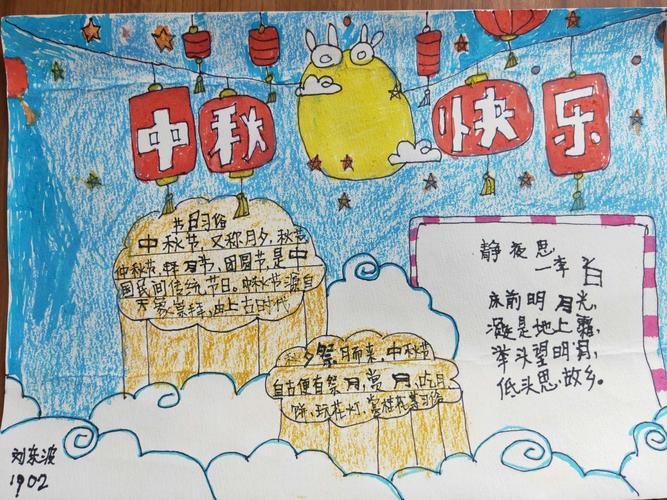 中秋快乐
节日习俗
中秋节,又称月夕、秋节
仲秋节、拜月节、团圆节是中
国民间传统节日。中秋节源自
天象崇拜,由上古时代
秋夕祭月而来.中秋节
自古便有祭月、赏月、吃月
饼、玩花灯、赏桂花等习俗
静夜思
—李白
床前明月光,
凝是地上霜,
举头望明月,
低头思故乡。
刘东波
1902